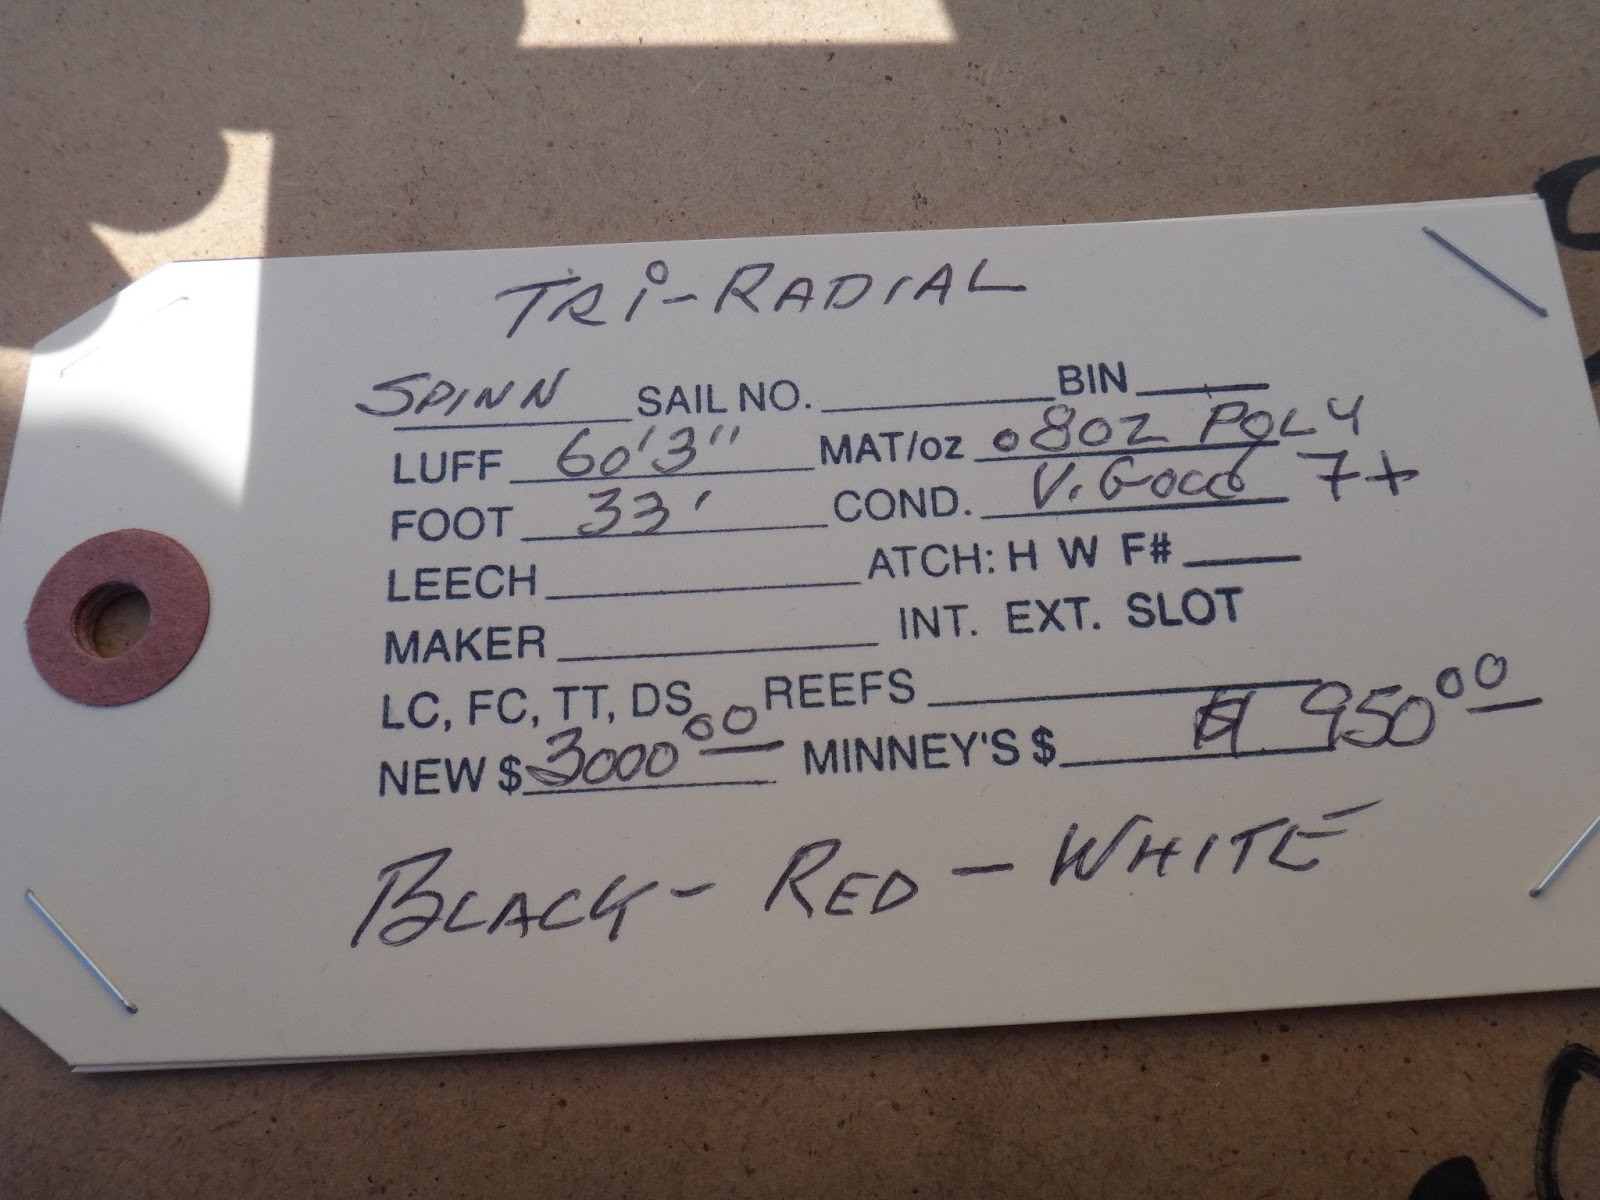 TRi-RADIAL
SPINN SAIL NO. BIN
LUFF 60'3" MAT/oz .8oz POLY
FOOT 33' COND. V. Good 7+
LEECH ATCH: H W F#
MAKER INT. EXT. SLOT
LC, FC, TT, DS REEFS
NEW $ 3000 00 MINNEY'S $ 950 00
BLACK - RED - WHITE